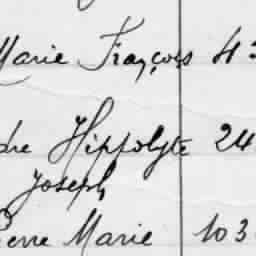 Marie François 43
dre Hippolyte 24
Joseph
Pierre Marie 103